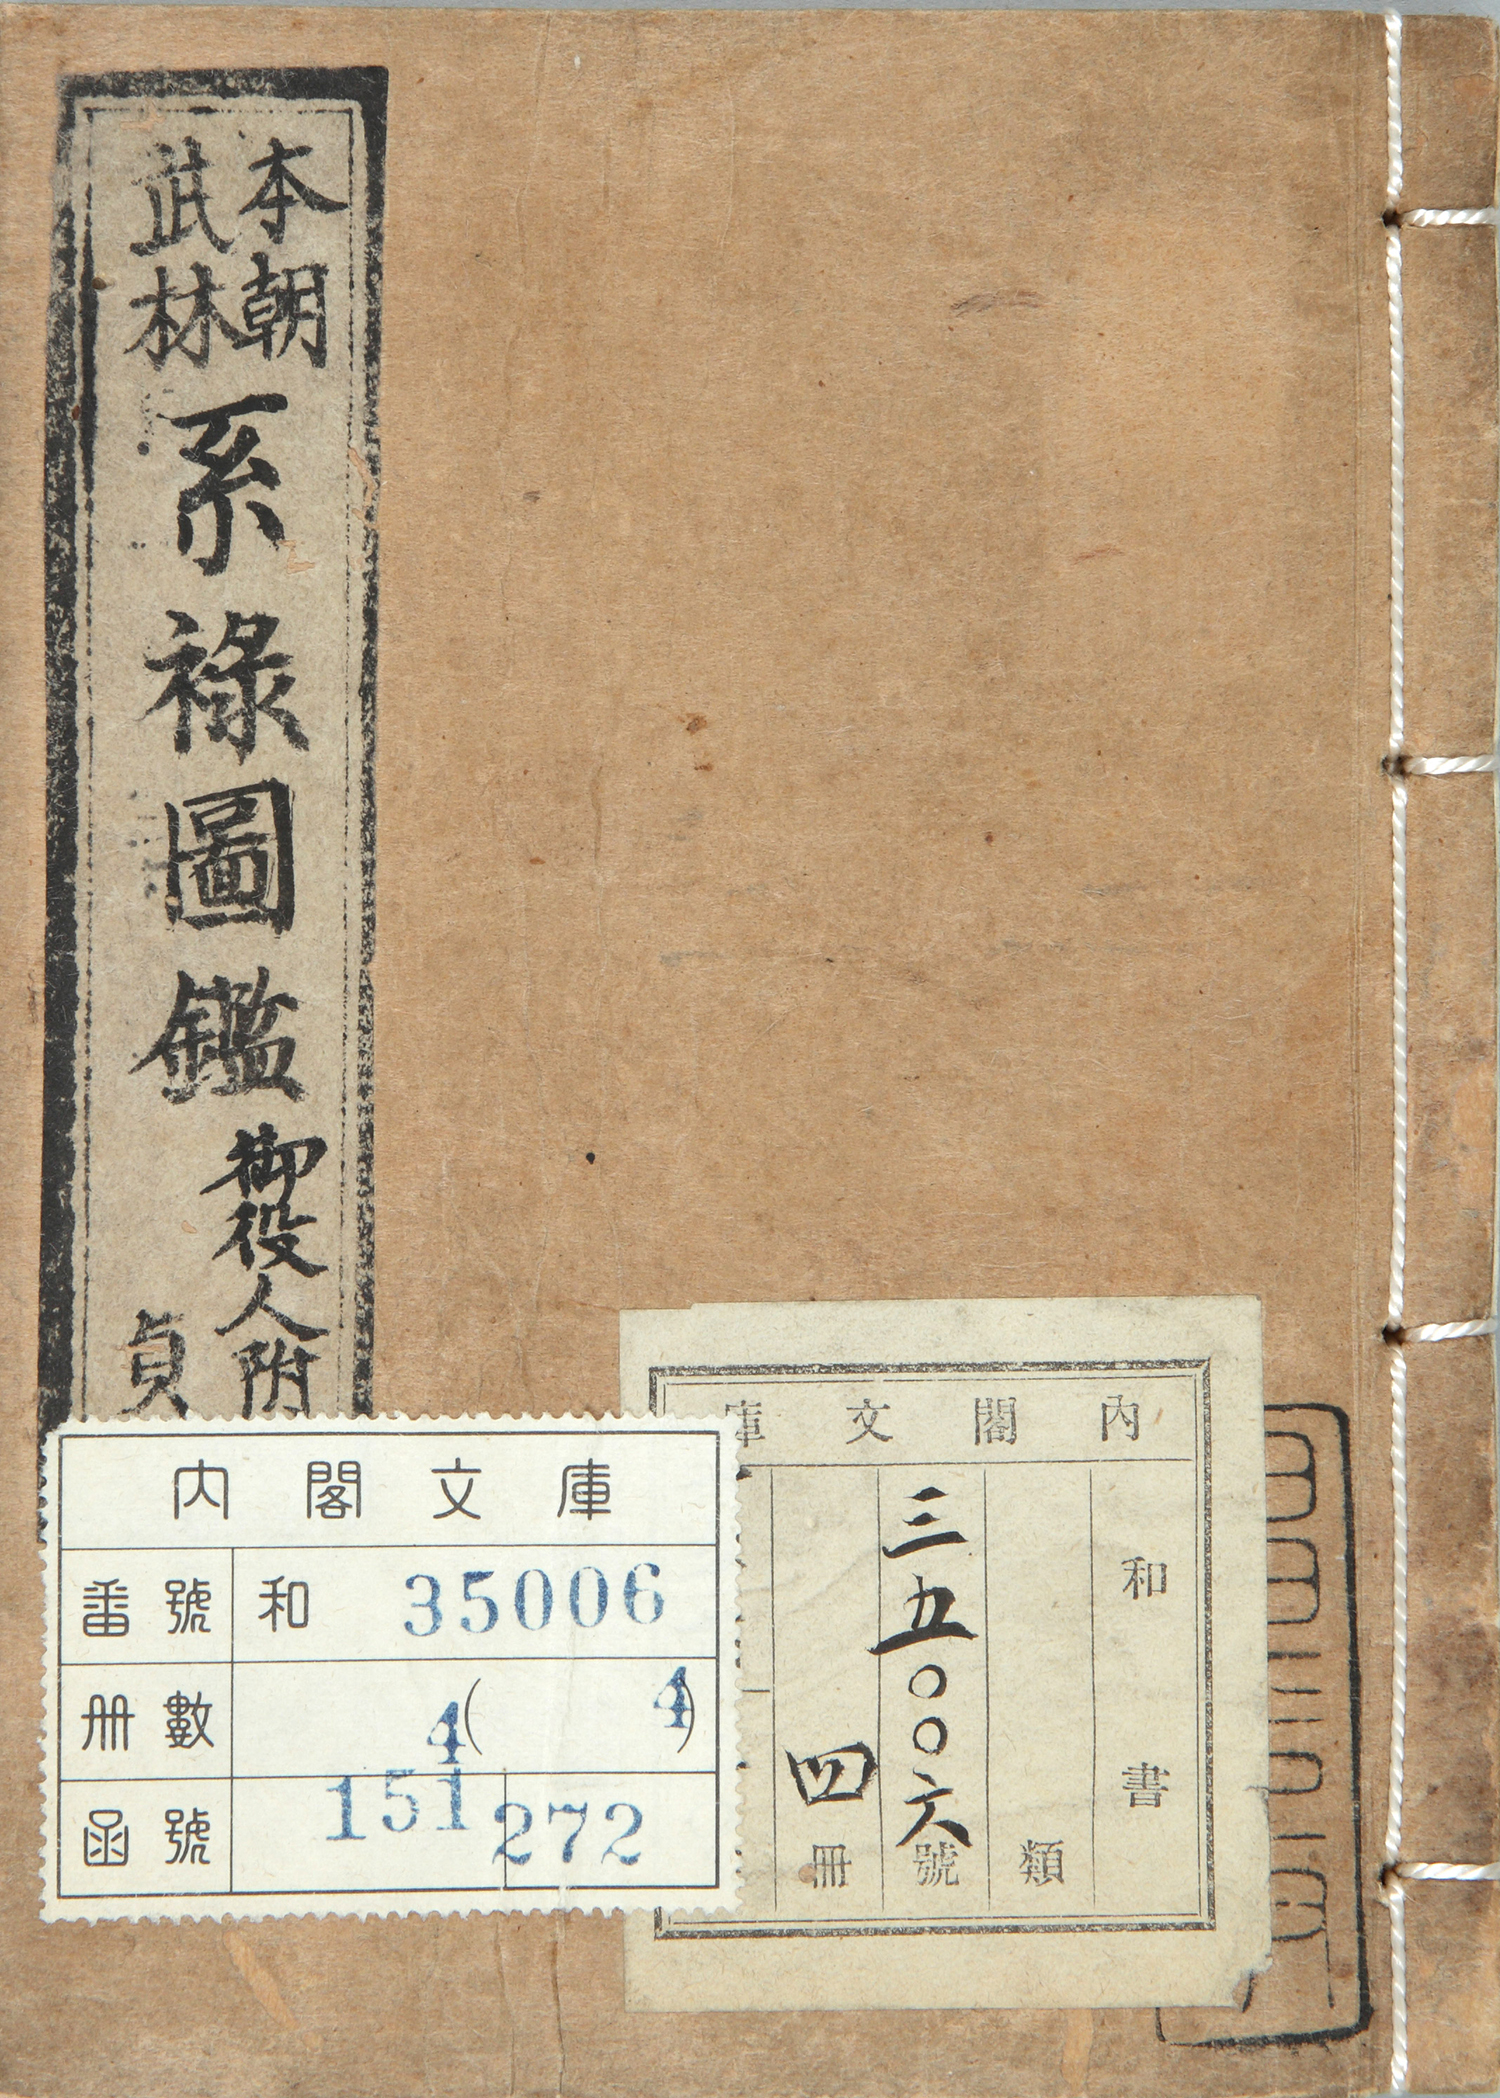 本朝
武林
系祿圖鑑
御役人附
貞
內閣文庫
和書
類
三五〇〇六號
四冊
內閣文庫
番號 和 35006
冊數 4(4)
函號 151 272